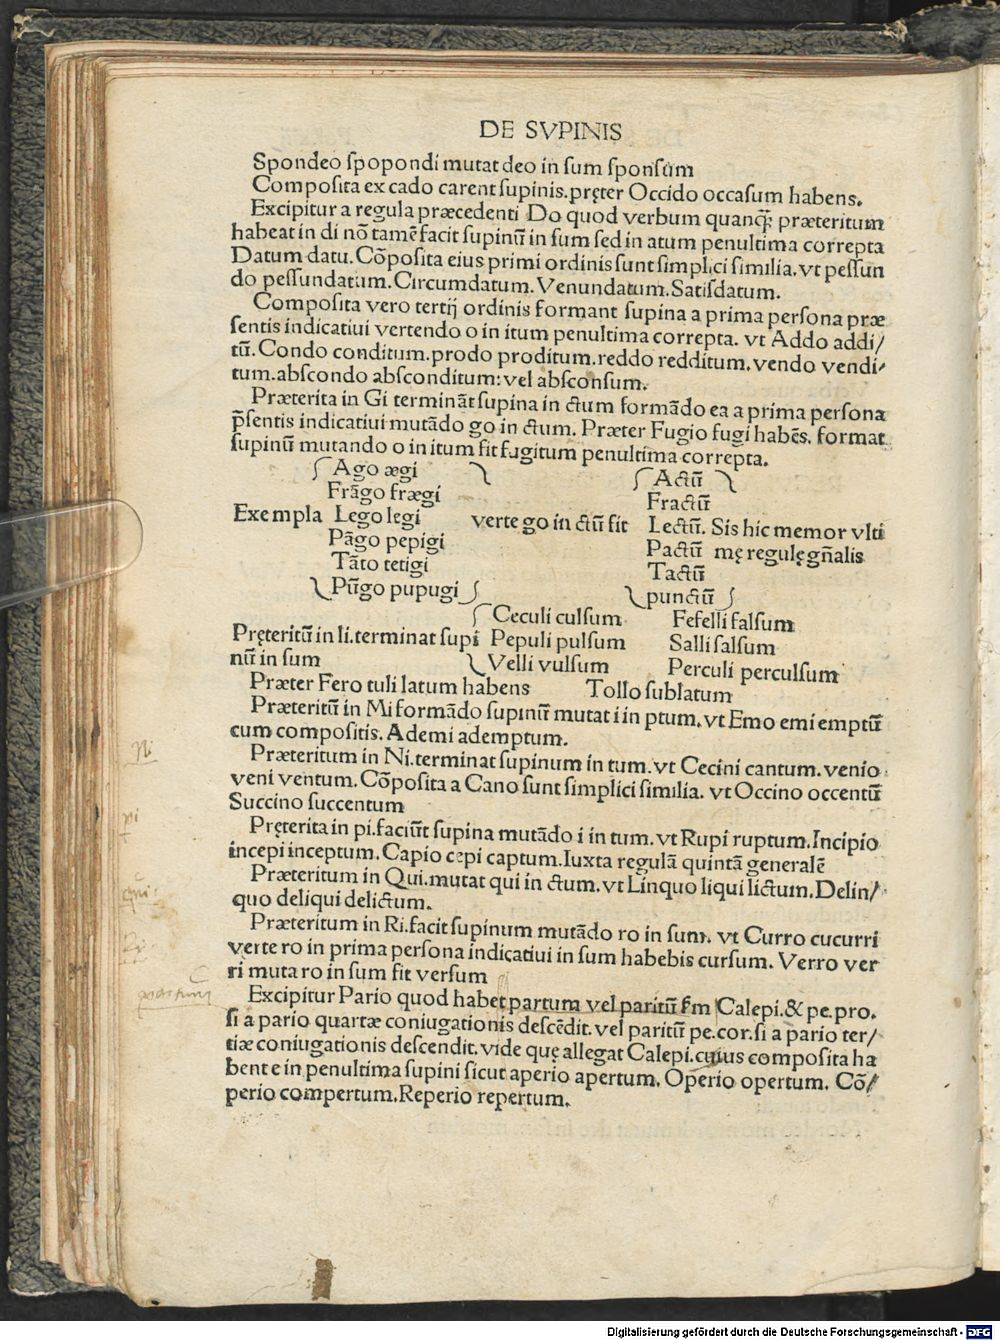 DE SVPINIS
Spondeo ſpopondi mutat deo in ſum ſponſum
Compoſita ex cado carent ſupinis. pręter Occido occaſum habens.
Excipitur a regula præcedenti Do quod verbum quanqꝫ præteritum
habeat in di nõ tamẽ facit ſupinũ in ſum ſed in atum penultima correpta
Datum datu. Cõpoſita eius primi ordinis ſunt ſimplici ſimilia. vt peſſun
do peſſundatum. Circumdatum. Venundatum. Satiſdatum.
Compoſita vero tertij ordinis formant ſupina a prima perſona præ
ſentis indicatiui vertendo o in itum penultima correpta. vt Addo addi/
tũ. Condo conditum. prodo proditum. reddo redditum. vendo vendi/
tum. abſcondo abſconditum: vel abſconſum.
Præterita in Gi terminãt ſupina in ctum formãdo ea a prima perſona
p̃ſentis indicatiui mutãdo go in ctum. Præter Fugio fugi habẽs. format
ſupinũ mutando o in itum fit fugitum penultima correpta.
Ago ægi Actũ
Frãgo frægi Fractũ
Exempla Lego legi verte go in ctũ fit Lectũ. Sis hic memor vlti
Pãgo pepigi Pactũ mę regulę gñalis
Tãto tetigi Tactũ
Pũgo pupugi punctũ
Ceculi culſum Fefelli falſum
Pręteritũ in li. terminat ſupi Pepuli pulſum Salli ſalſum
nũ in ſum Velli vulſum Perculi perculſum
Præter Fero tuli latum habens Tollo ſublatum
Præteritũ in Mi formãdo ſupinũ mutat i in ptum. vt Emo emi emptũ
cum compoſitis. Ademi ademptum.
Præteritum in Ni. terminat ſupinum in tum. vt Cecini cantum. venio
veni ventum. Cõpoſita a Cano ſunt ſimplici ſimilia. vt Occino occentũ
Succino ſuccentum
Pręterita in pi. faciũt ſupina mutãdo i in tum. vt Rupi ruptum. Incipio
incepi inceptum. Capio cepi captum. Iuxta regulã quintã generalẽ
Præteritum in Qui. mutat qui in ctum. vt Linquo liqui lictum. Delin/
quo deliqui delictum.
Præteritum in Ri. facit ſupinum mutãdo ro in ſum. vt Curro cucurri
verte ro in prima perſona indicatiui in ſum habebis curſum. Verro ver
ri muta ro in ſum fit verſum
Excipitur Pario quod habet partum vel paritũ ſm Calepi. & pe. pro.
ſi a pario quartæ coniugationis deſcẽdit. vel paritũ pe. cor. ſi a pario ter/
tiæ coniugationis deſcendit. vide quę allegat Calepi. cuius compoſita ha
bent e in penultima ſupini ſicut aperio apertum. Operio opertum. Cõ/
perio compertum. Reperio repertum.
Ni
pi
qui
Ri
Digitalisierung gefördert durch die Deutsche Forschungsgemeinschaft - DFG